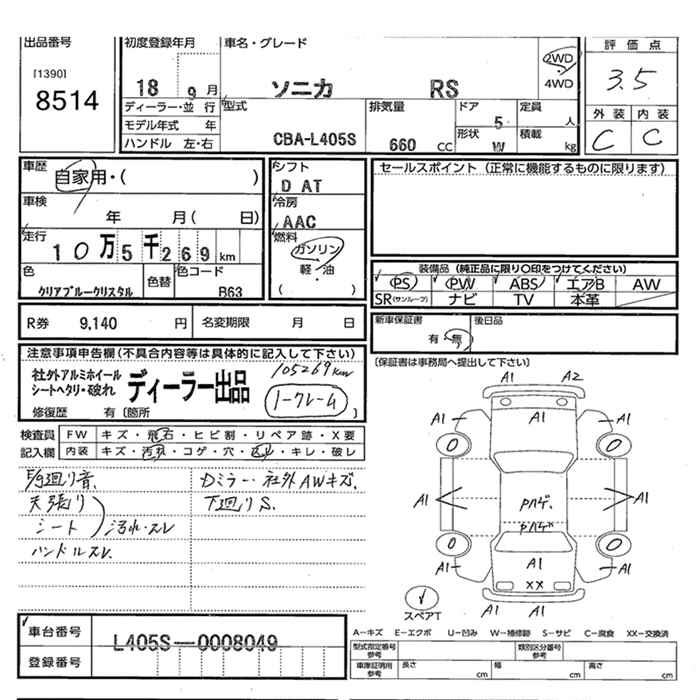 出品番号
[1390]
8514
初度登録年月
18 9月
車名・グレード
ソニカ RS
2WD
4WD
評価点
3.5
ディーラー・並行
モデル年式 年
ハンドル 左・右
型式
CBA-L405S
排気量
660 CC
ドア
5
形状
W
定員
人
積載
kg
外装 内装
C C
車歴
自家用・( )
車検
年 月( 日)
走行
10万5千269km
色
クリアブルークリスタル
色替
色コード
B63
シフト
D AT
冷房
AAC
燃料
ガソリン
軽・油
( )
セールスポイント (正常に機能するものに限ります)
装備品 (純正品に限り○印をつけてください)
PS PW ABS エアB AW
SR(サンルーフ) ナビ TV 本革
R券 9,140 円
名変期限 月 日
新車保証書
有・無
後日品
(保証書は事務局へ提出して下さい)
注意事項申告欄(不具合内容等は具体的に記入して下さい)
社外アルミホイール
シートヘタリ・破れ
ディーラー出品
105269km
ノークレーム
修復歴 有〔箇所
検査員
記入欄
FW キズ・飛石・ヒビ割・リペア跡・X要
内装 キズ・汚れ・コゲ・穴・・キレ・破レ
E/g廻り音.
天張り
シート
汚れ・スレ
ハンドルスレ.
Dミラー・社外AWキズ.
下廻りS.
A1 A2
A1
A1 A1
0 0
A1 A1
Pハゲ.
Pハゲ
0 0
A1 A1 A1
XX
A1 A1
スペアT
車台番号
L405S-0008049
登録番号
A-キズ E-エクボ U-凹み W-補修跡 S-サビ C-腐食 XX-交換済
型式指定番号
参考
類別区分番号
参考
車庫証明用
参考
長さ cm
幅 cm
高さ cm